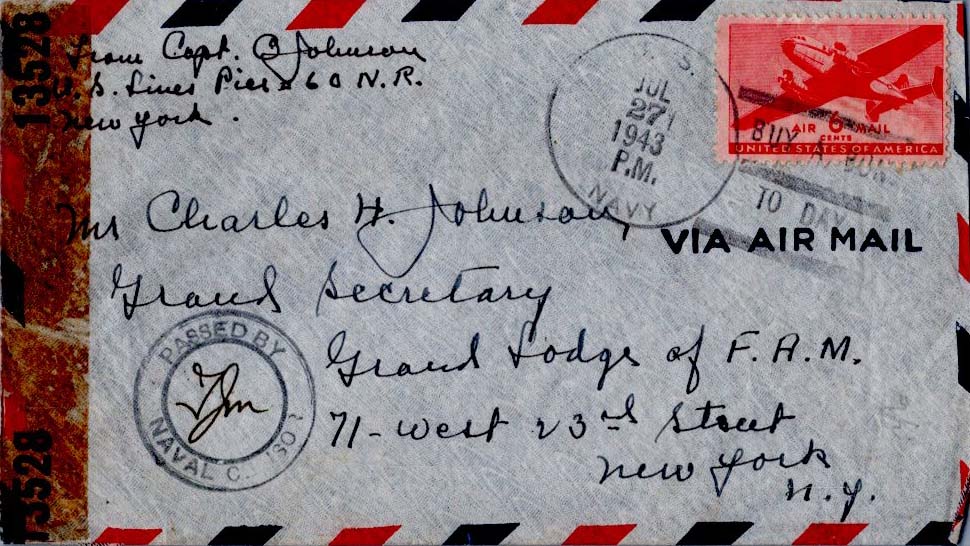 13528
From Capt. B Johnson
U.S. Lines Pier 60 N.R.
New York.
U.S.
JUL
27
1943
P.M.
NAVY
BUY A BONDS
TO DAY
AIR 6 MAIL
CENTS
UNITED STATES OF AMERICA
VIA AIR MAIL
Mr Charles H. Johnson,
Grand Secretary
Grand Lodge of F.A.M.
71-West 23rd Street
New York
N.Y.
PASSED BY
NAVAL
13528